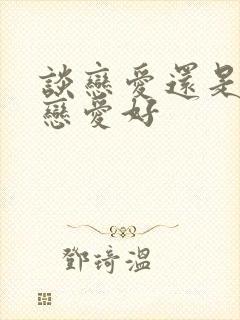 談戀愛還是
戀愛好
鄧琦溫